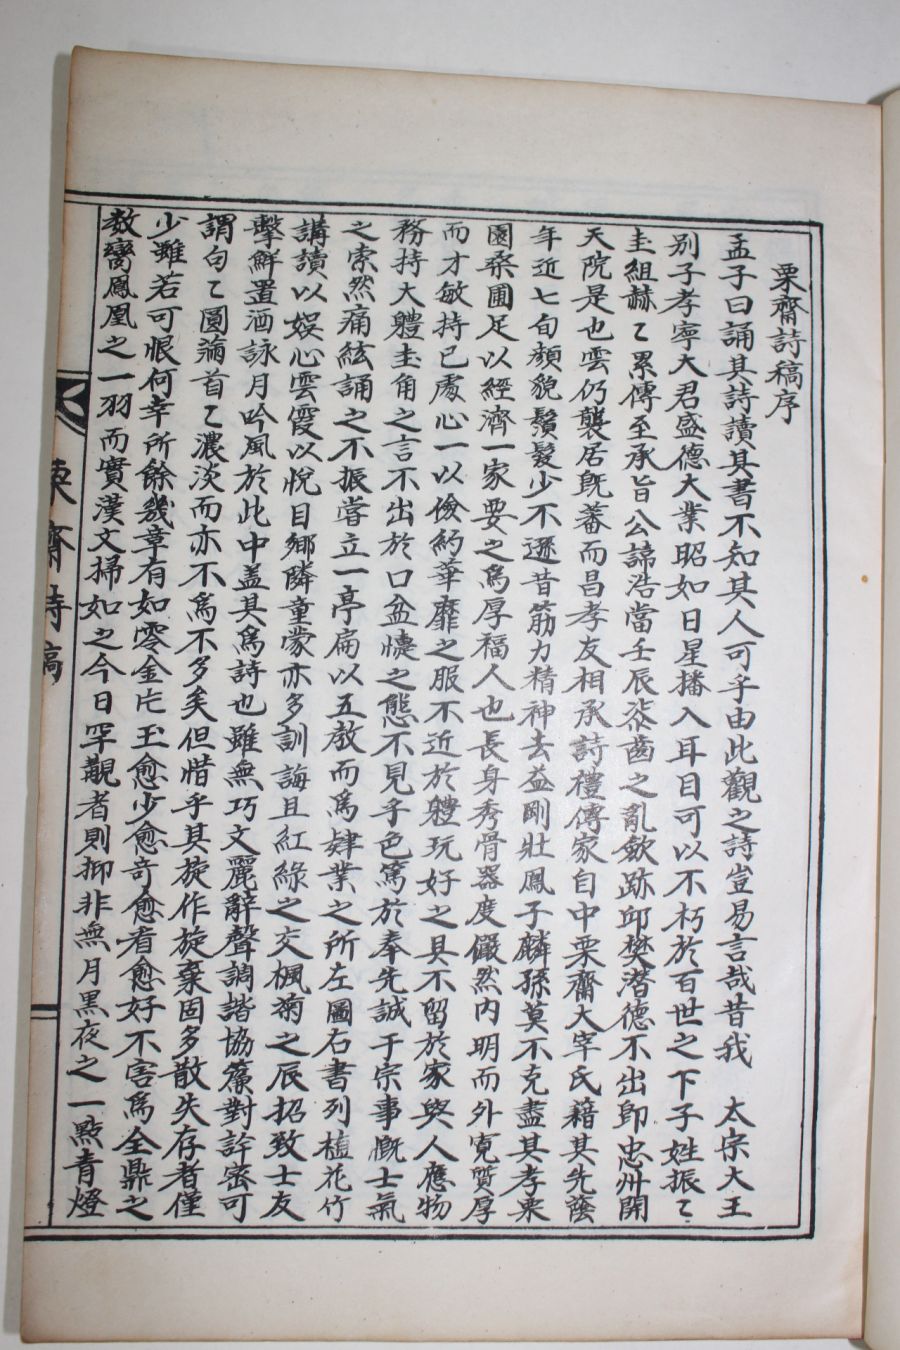 栗齋詩稿序
孟子曰誦其詩讀其書不知其人可乎由此觀之詩豈易言哉昔我 太宗大王
別子孝寧大君盛德大業昭如日星播入耳目可以不朽於百世之下子姓振〻
圭組赫〻累傳至承旨公諱浩當壬辰蔘齒之亂斂跡邱樊潛德不出卽忠州開
天院是也雲仍襲居旣蕃而昌孝友相承詩禮傳家自中栗齋大宰氏藉其先蔭
年近七旬顏貌鬚髮少不遜昔筋力精神去益剛壯鳳子麟孫莫不克盡其孝栗
園桑圃足以經濟一家要之爲厚福人也長身秀骨器度儼然內明而外寬質厚
而才敏持已處心一以儉約華靡之服不近於軆玩好之具不留於家與人應物
務持大軆圭角之言不出於口忿懥之態不見乎色篤於奉先誠于宗事慨士氣
之索然痛絃誦之不振嘗立一亭扁以五敎而爲肄業之所左圖右書列植花竹
講讀以娛心雲霞以悅目鄕隣童蒙亦多訓誨且紅綠之交楓菊之辰招致士友
擊鮮置酒詠月吟風於此中盖其爲詩也雖無巧文麗辭聲調諧協簾對詳密可
謂句〻圓滿首〻濃淡而亦不爲不多矣但惜乎其旋作旋棄固多散失存者僅
少雖若可恨何幸所餘幾章有如零金片玉愈少愈奇愈看愈好不害爲全鼎之
数臠鳳凰之一羽而實漢文掃如之今日罕覯者則抑非無月黑夜之一點靑燈
栗齋詩稿